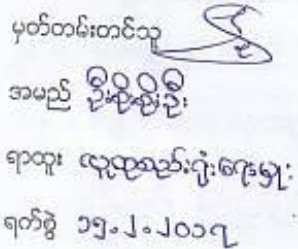 မှတ်တမ်းတင်သူ
အမည် ဦးစိုးစိုးဦး
ရာထူး လူထုစည်းရုံးရေးမှူး
ရက်စွဲ ၁၅.၂.၂၀၁၇